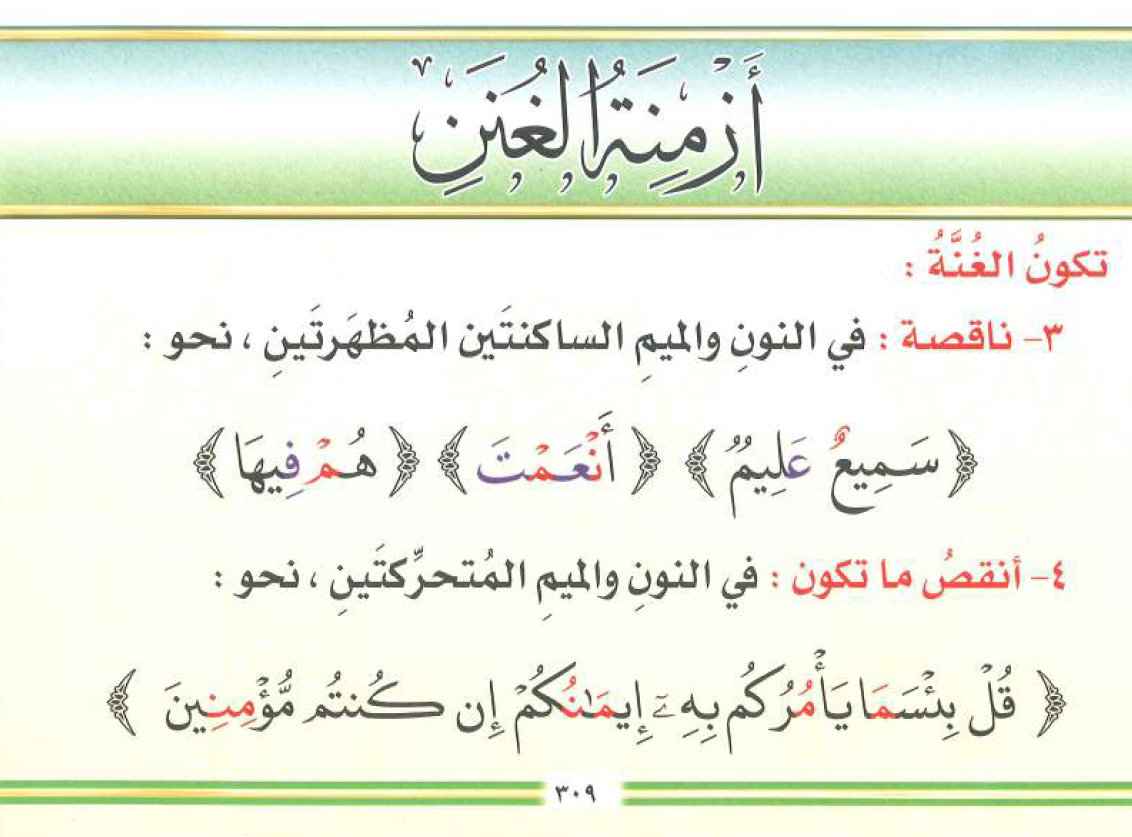 أَزْمِنَةُ الغُنَنِ
تكونُ الغُنَّةُ :
٣- ناقصة : في النونِ والميمِ الساكنتَين المُظهَرتَينِ ، نحو :
﴿ سَمِيعٌ عَلِيمٌ ﴾ ﴿ أَنْعَمْتَ ﴾ ﴿ هُمْ فِيهَا ﴾
٤- أنقصُ ما تكون : في النونِ والميمِ المُتحرِّكتَينِ ، نحو :
﴿ قُلْ بِئْسَمَا يَأْمُرُكُم بِهِۦٓ إِيمَٰنُكُمْ إِن كُنتُم مُّؤْمِنِينَ ﴾
٣٠٩